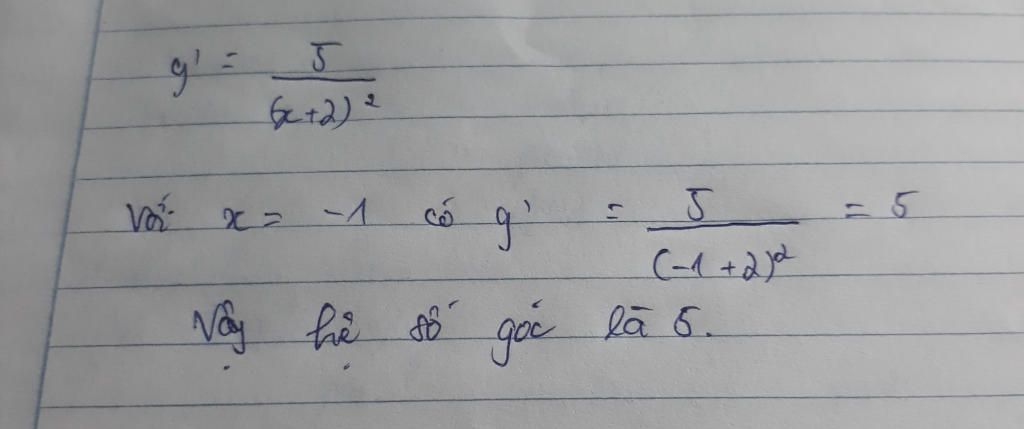 y' = 5/(x+2)²
Với x = -1 có y' = 5/(-1+2)² = 5
Vậy hệ số góc là 5.